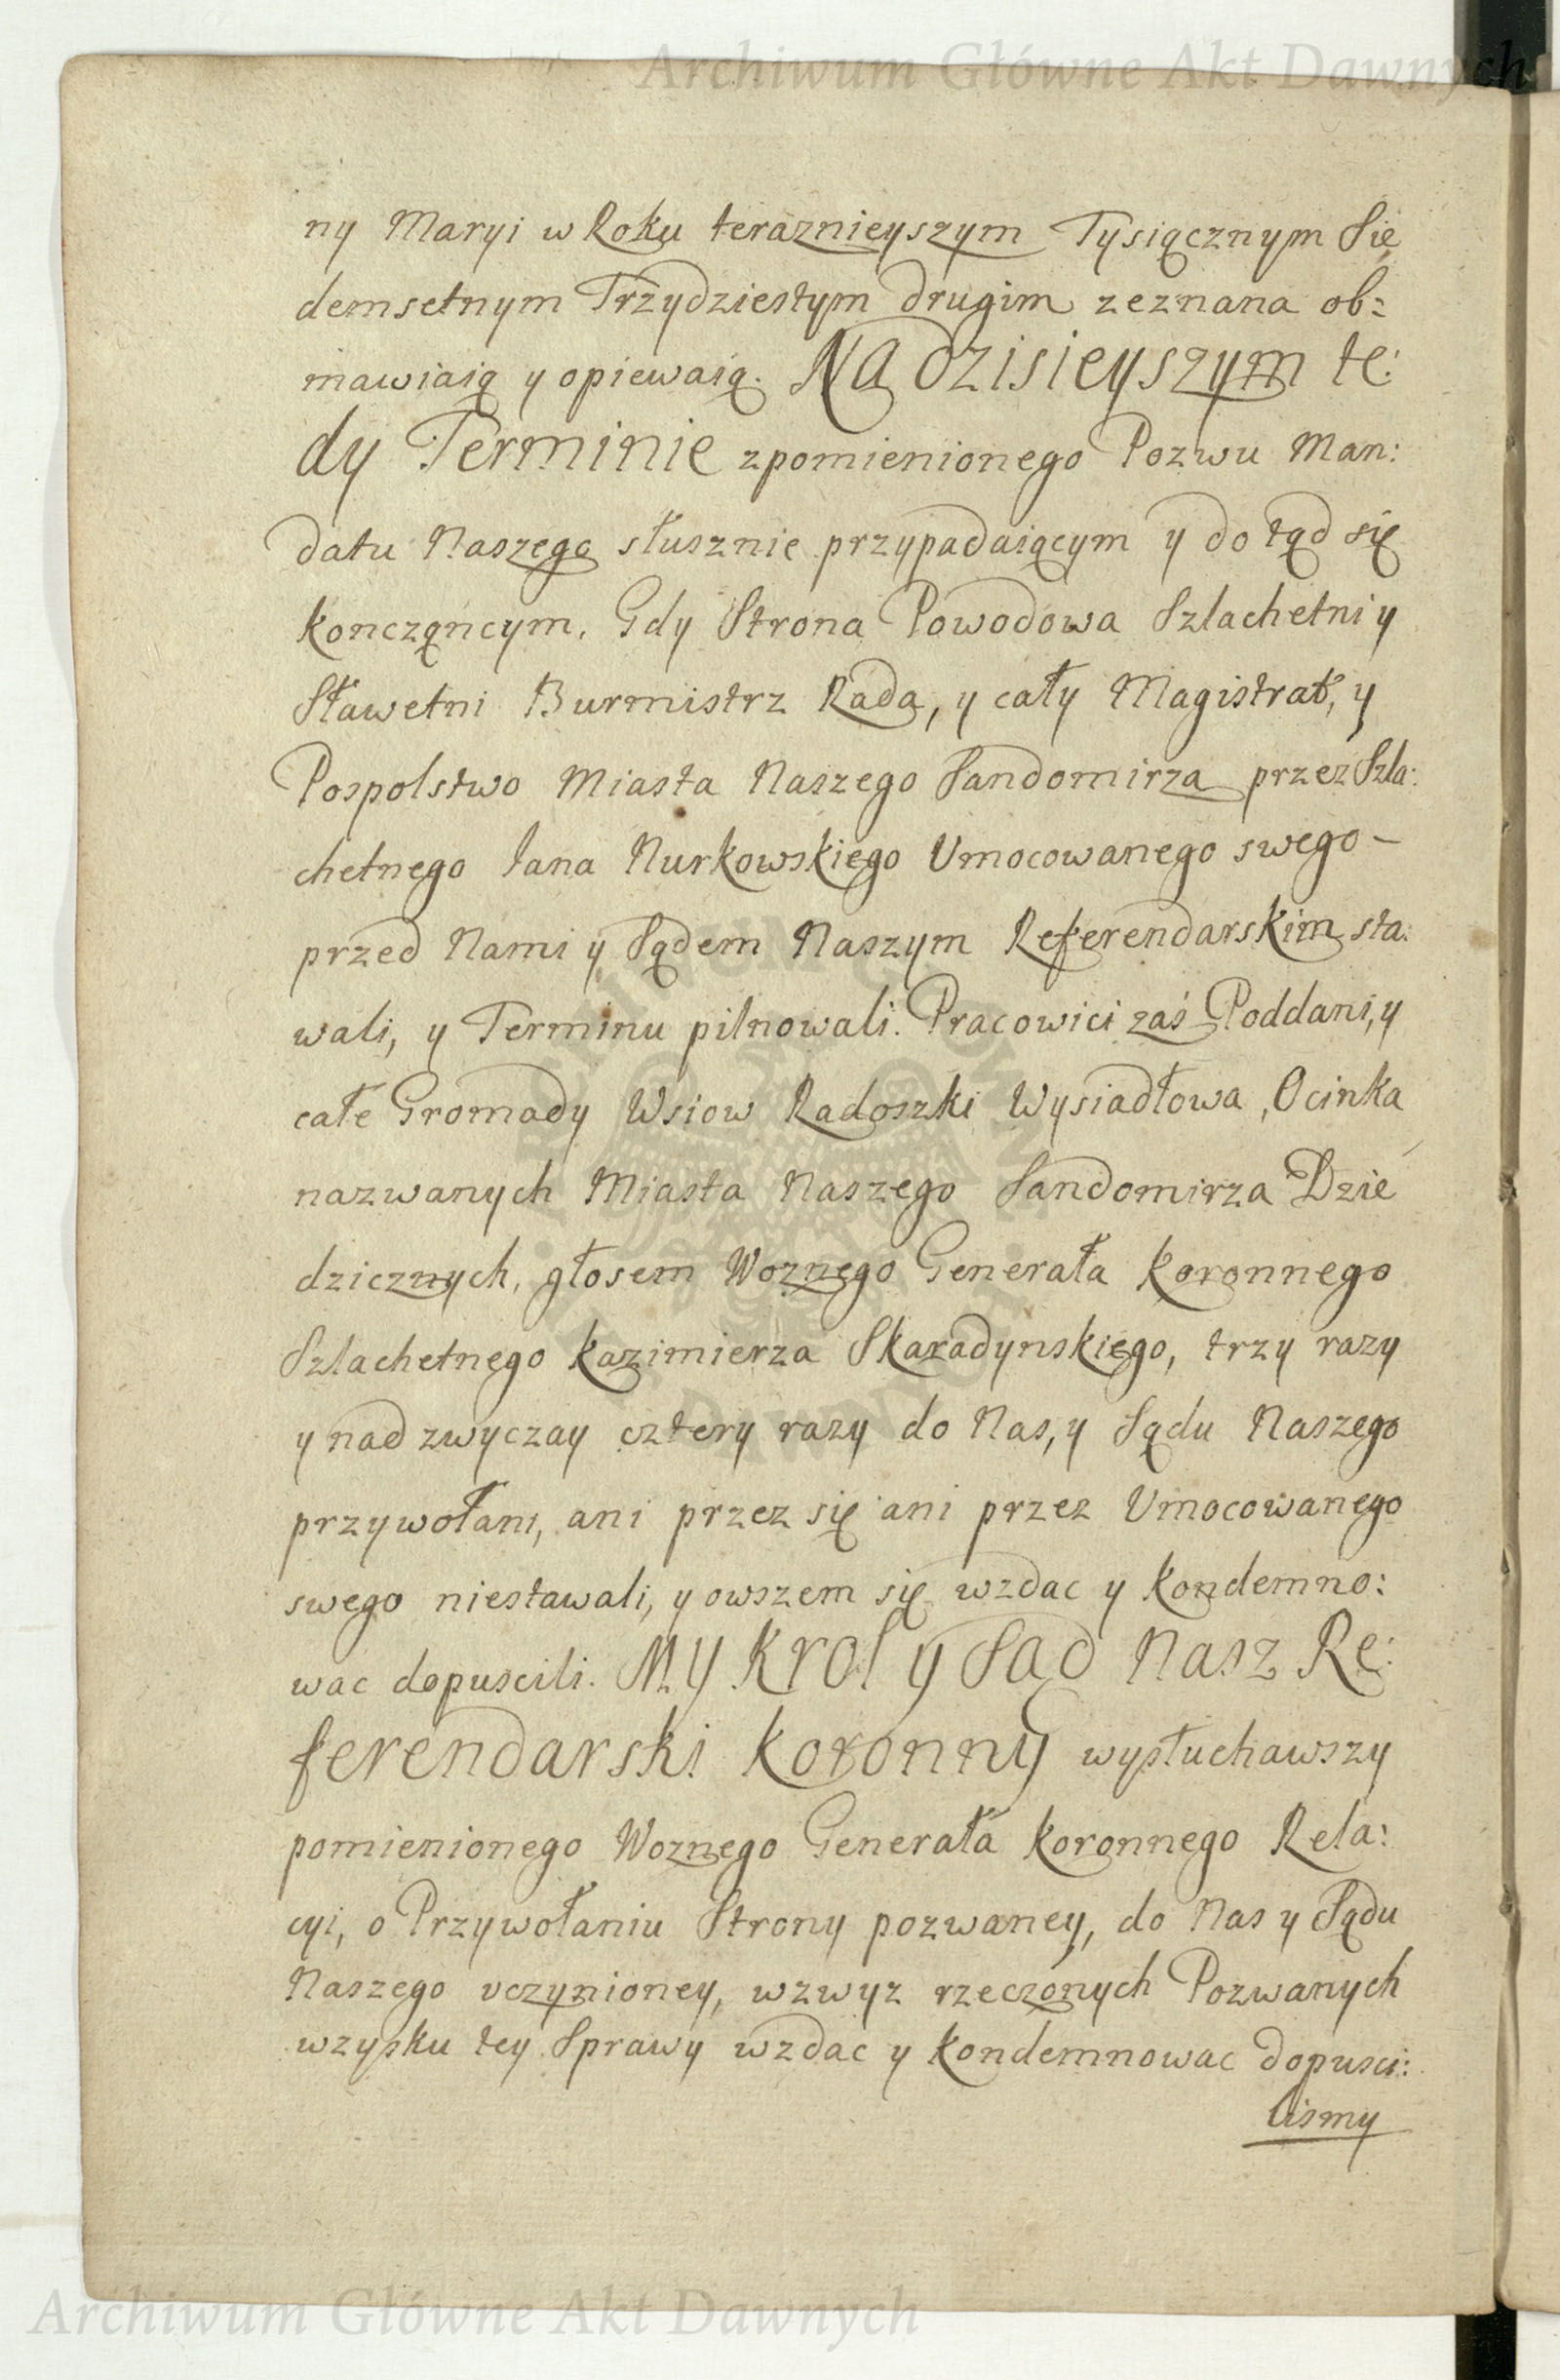 Archiwum Główne Akt Dawnych
ny Maryi w Roku teraznieyszym Tysiącznym Sie
demsetnym Trzydziestym drugim zeznana ob:
mawiaią y opiewaią. Na dzisieyszym te:
dy Terminie zpomienionego Pozwu Man:
datu Naszego słusznie przypadaiącym y do tąd się
konczęncym. Gdy Strona Powodowa Szlachetni y
Sławetni Burmistrz Rada, y cały Magistrat, y
Pospolstwo Miasta Naszego Sandomirza przez Szla:
chetnego Jana Nurkowskiego Umocowanego swego –
przed Nami y Sądem Naszym Referendarskim sta:
wali, y Terminu pilnowali. Pracowici zaś Poddani, y
całe Gromady Wsiow Radoszki Wysiadłowa, Ocinka
nazwanych Miasta Naszego Sandomirza Dzie
dzicznych, głosem Woznego Generała Koronnego
Szlachetnego Kazimierza Skaradynskiego, trzy razy
y nad zwyczay cztery razy do Nas, y Sądu Naszego
przywołani, ani przez się ani przez Umocowanego
swego niestawali, y owszem się wzdac y Kondemno:
wac dopuscili. My Krol y Sąd Nasz Re:
ferendarski Koronny wysłuchawszy
pomienionego Woznego Generała Koronnego Rela:
cyi, o Przywołaniu Strony pozwaney, do Nas y Sądu
Naszego uczynioney, wzwyz rzeczonych Pozwanych
wzysku tey Sprawy wzdac y Kondemnowac dopusci:
lismy
Archiwum Główne Akt Dawnych